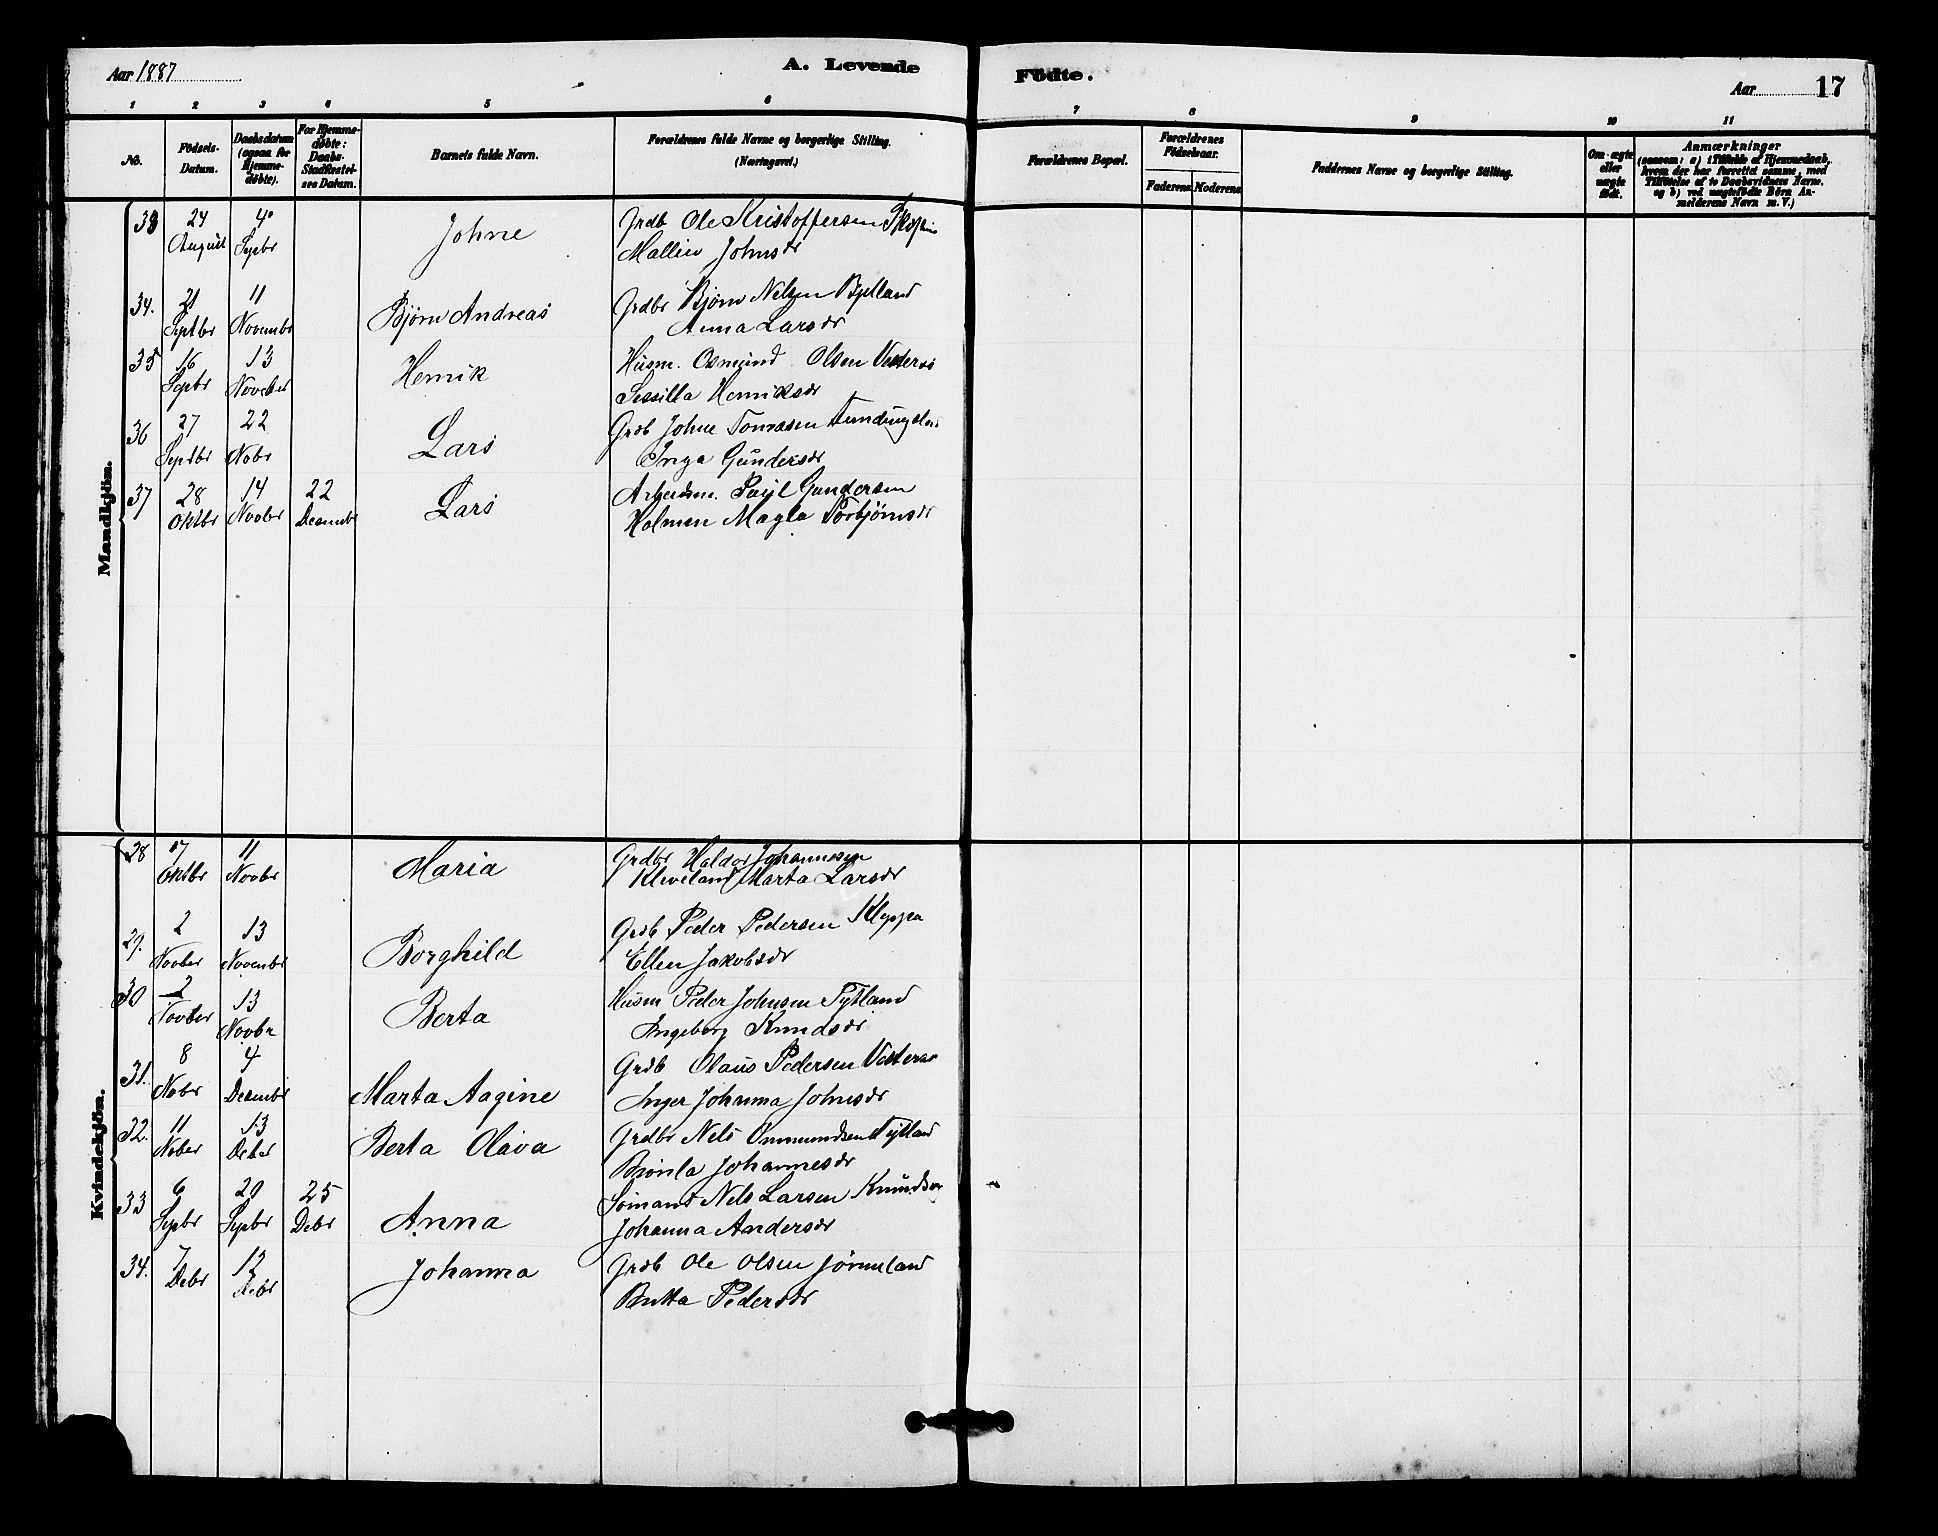 Aar 1887
A. Levende
Födte.
Aar
17
1 2 3 4 5 6
7 8 9 10 11
No.
Födsels-Datum.
Daabsdatum (ogsaa for Hjemme-döbte).
For Hjemme-döbte: Daabs-Stadfæstel-ses Datum.
Barnets fulde Navn.
Forældrenes fulde Navne og borgerlige Stilling.
(Næringsvei.)
Forældrenes Bopæl.
Forældrenes Födselsaar.
Faderens
Moderens
Faddernes Navne og borgerlige Stilling.
Om ægte eller uægte födt.
Anmærkninger
(saasom: a) i Tilfælde af Hjemmedaab,
hvem der har forrettet samme, med
Tilföielse af to Daabsvidners Navne.
og b) ved uægtefödte Börn An-
melderens Navn m. V.)
Mandkjön.
33 24 August 4 Sepbr Johne Grdb Ole Kristoffersen
Mallin Johnsdr
34. 21 Septbr 11 Novembr Bjørn Andreas Grdbr Bjørn Nelsen Bjelland
Anna Larsdr
35 16 Sepbr 13 Novbr Henrik Husm. Osmund Olsen
Sessilla Henriksdr
36 27 Septbr 22 Nobr Lars Grdb Johne Tomasen
Inga Gundersdr
37 28 Oktbr 14 Novbr 22 Desembr Lars Arbeidsm. Paul Gundersen
Holmen Magla Torbjørnsdr
Kvindekjön.
28 17 Oktbr 11 Novbr Maria Grdbr Haldor Johannesen
Kleveland Marta Larsdr
29. 2 Novber 13 Novembr Borghild Grdb Peder Pedersen Kleppa
Ellen Jakobsdr
30 2 Novber 13 Novbr Berta Husm Peder Johnsen Tytland
Ingeborg Knudsdr
31. 8 Nobr 4 Desembr Marta Aagine Grdb Olaus Pedersen
Inger Johanna Johnsdr
32. 11 Nober 13 Deber Berta Olava Grdbr Nels Ommundsen Tytland
Brønla Johannesdr
33 6 Sepbr 20 Sepbr 25 Debr Anna Sømand Nels Larsen
Johanna Andersdr
34. 7 Debr 12 Debr Johanna Grdb Ole Olsen Jørmeland
Pedersdr